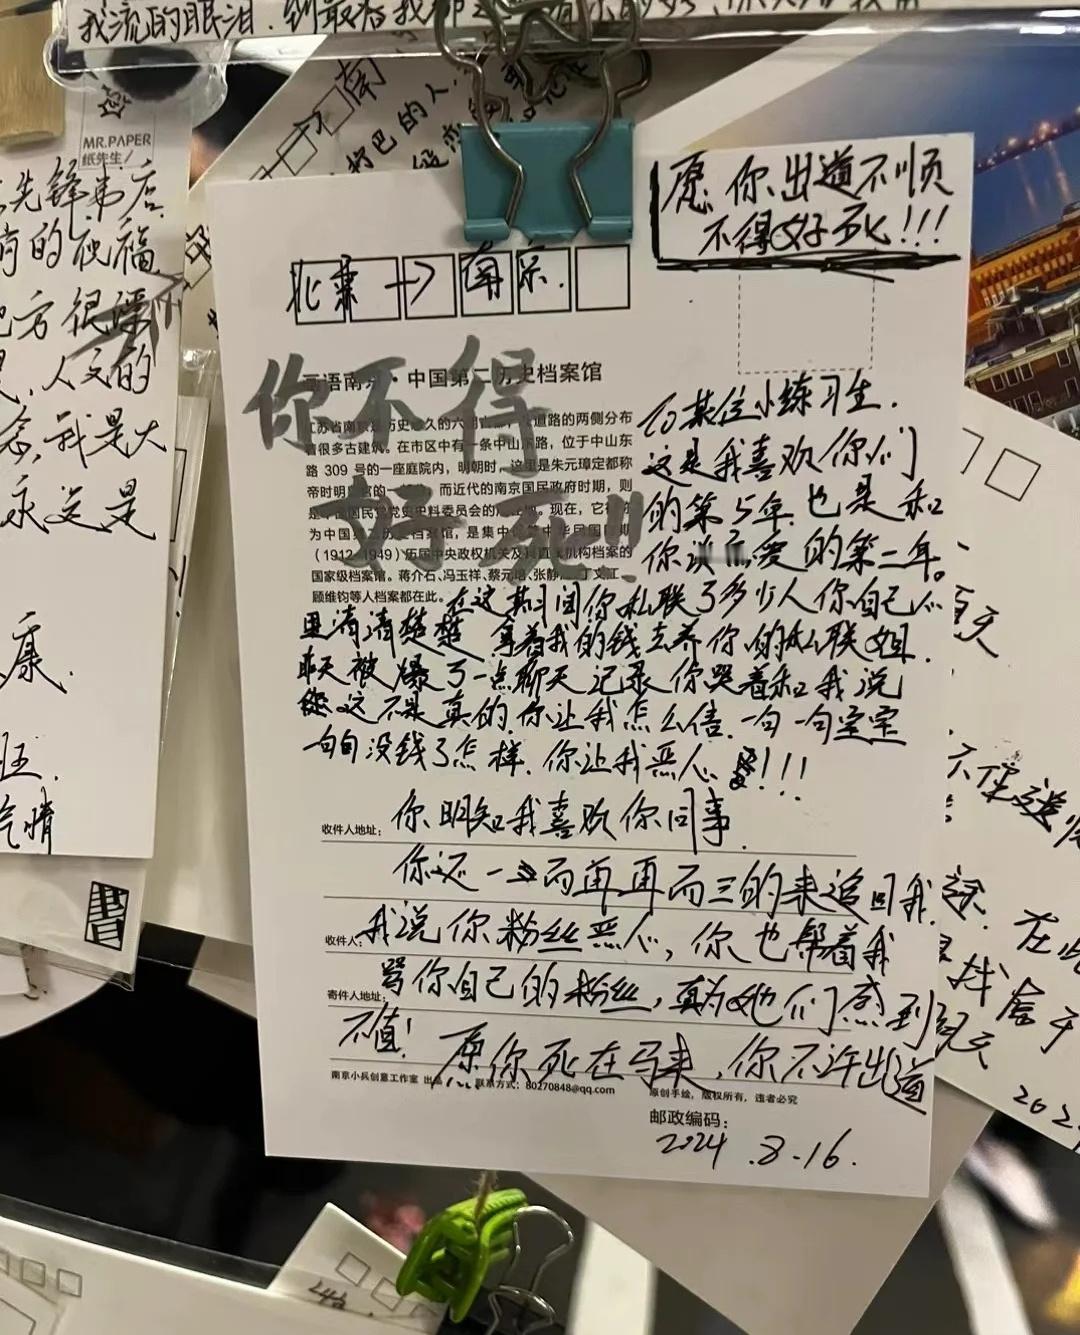 我流的眼泪.到最后我都
MR.PAPER
纸先生/
南
的人
先锋书店
的祝福
地方很漂
人文的
念,我是大
永远是
康.
晴
書
愿你出道不顺
不得好死!!!
北京→南京.
你不得
好死!!
南京·中国第二历史档案馆
道路的两侧分布
着很多古建筑。在市区中有一条中山东路，位于中山东
路 309 号的一座庭院内，明朝时，这里是朱元璋定都称
帝时明 而近代的南京国民政府时期，则
是中国国民党党史史料委员会的 现在，它
为中国第二历史档案馆，是集中 中华民国 期
（1912-1949）历届中央政权机关及其直 机构档案的
国家级档案馆。蒋介石、冯玉祥、蔡元培、张静 丁文江、
顾维钧等人档案都在此。
To某位小练习生.
这是我喜欢你们
的第5年.也是和
你谈恋爱的第二年。
在这期间你私联了多少人你自己心
里清清楚楚 拿着我的钱去养你的私联姐.
聊天被爆了一点聊天记录你哭着和我说
这不是真的.你让我怎么信.一句一句宝宝
一句句没钱了怎样.你让我恶心 !!!
收件人地址:
你明知我喜欢你同事.
你还一而再再而三的来追回我.
收件人:
我说你粉丝恶心,你也帮着我
寄件人地址:
骂你自己的粉丝,真为她们感到
不值!
愿你死在马来,你不许出道
南京小兵创意工作室 出品 联系方式：80270848@qq.com
原创手绘，版权所有，违者必究
邮政编码:
2024.8.16.
天
在此
202